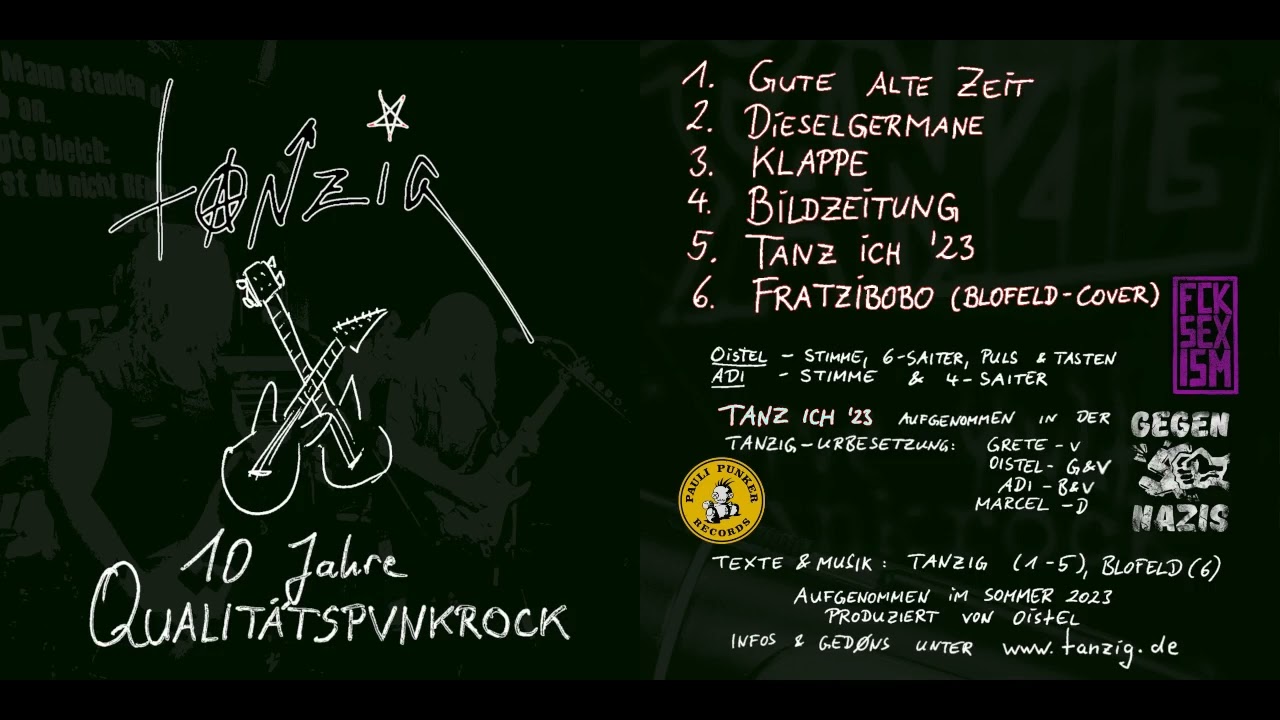 Mann standen d
b an.
gte bleich:
st du nicht BEN
CKT
tANZiG
10 Jahre
QUALITÄTSPVNKROCK
1. GUTE ALTE ZEiT
2. DiESELGERMANE
3. KLAPPE
4. BiLDZEiTUNG
5. TANZ iCH '23
6. FRATZiBOBO (BLOFELD-COVER)
FCK
SEX
ISM
OiSTEL - STiMME, 6-SAiTER, PULS & TASTEN
ADI - STiMME & 4-SAiTER
TANZ ICH '23 AUFGENOMMEN IN DER
TANZIG-URBESETZUNG: GRETE - V
OISTEL - G&V
ADI - B&V
MARCEL - D
GEGEN
NAZIS
PAULI PUNKER
RECORDS
TEXTE & MUSiK: TANZIG (1-5), BLOFELD (6)
AUFGENOMMEN iM SOMMER 2023
PRODUZiERT VON OiSTEL
INFOS & GEDØNS UNTER www.tanzig.de